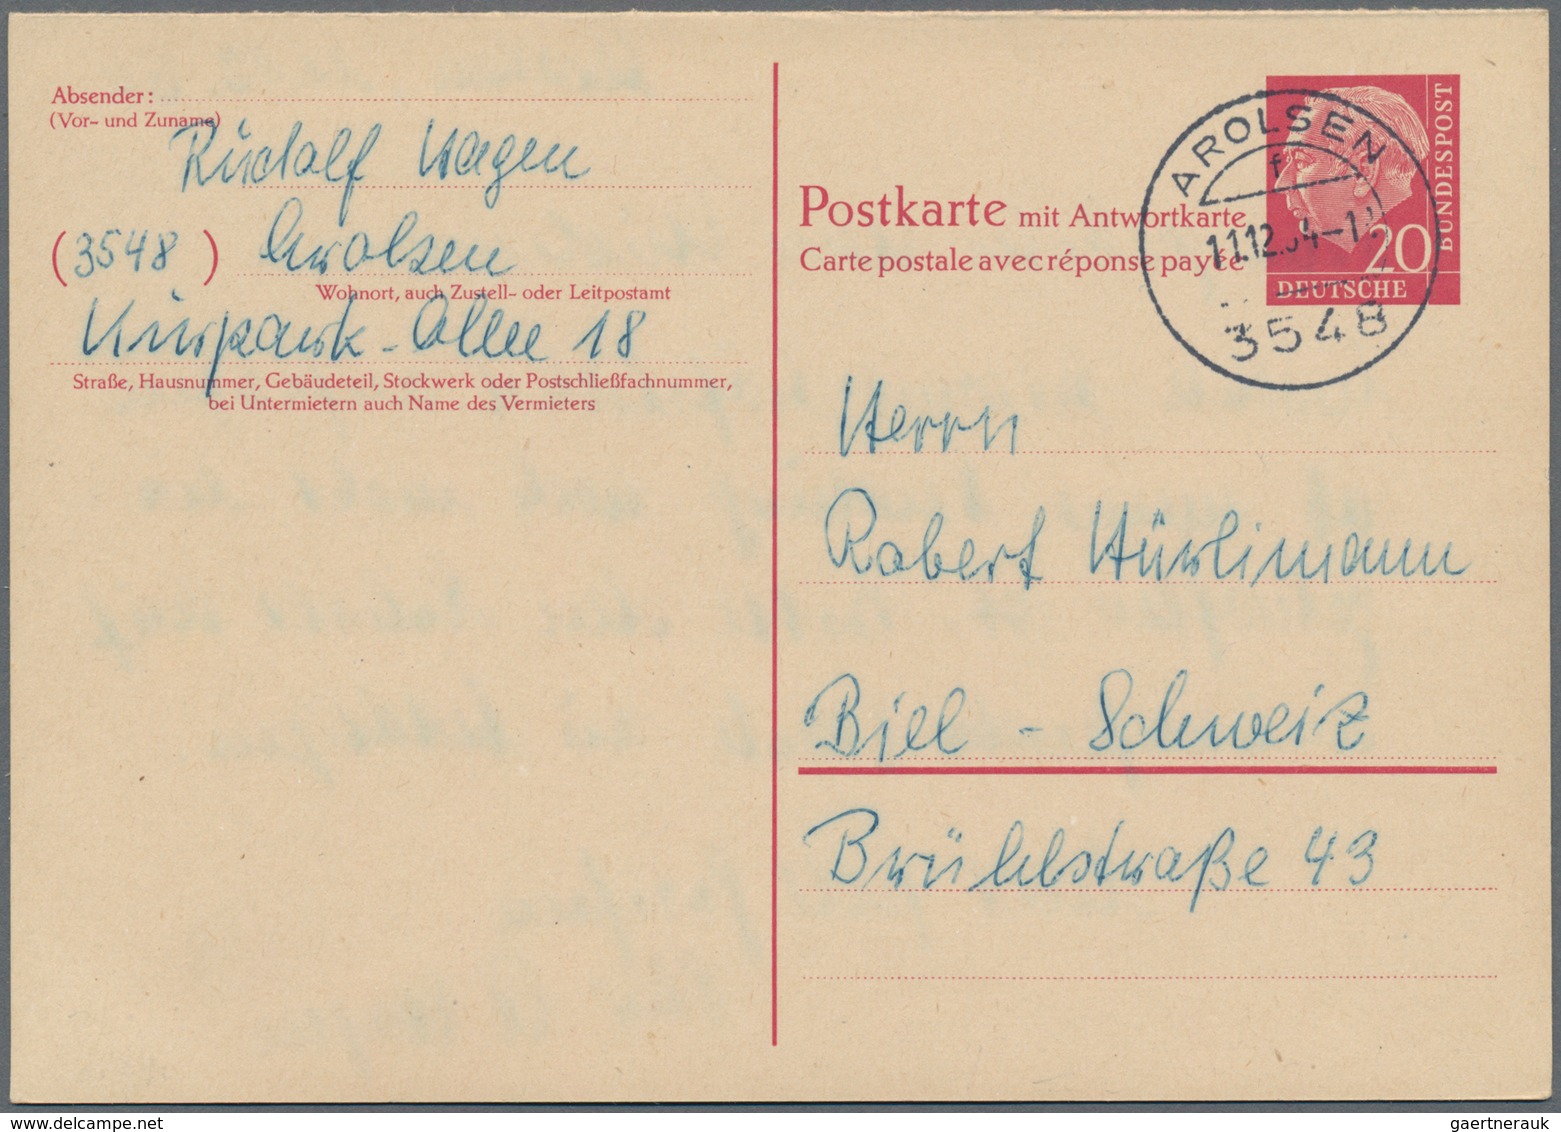 Absender:
(Vor- und Zuname)
Rudolf Hagen
(3548) Arolsen
Wohnort, auch Zustell- oder Leitpostamt
Kurpark-Allee 18
Straße, Hausnummer, Gebäudeteil, Stockwerk oder Postschließfachnummer,
bei Untermietern auch Name des Vermieters
AROLSEN
f
11.12.64-1
3548
BUNDESPOST
20
DEUTSCHE
Postkarte mit Antwortkarte
Carte postale avec réponse payée
Herrn
Robert Hürlimann
Biel - Schweiz
Brühlstraße 43
gaertnerauk